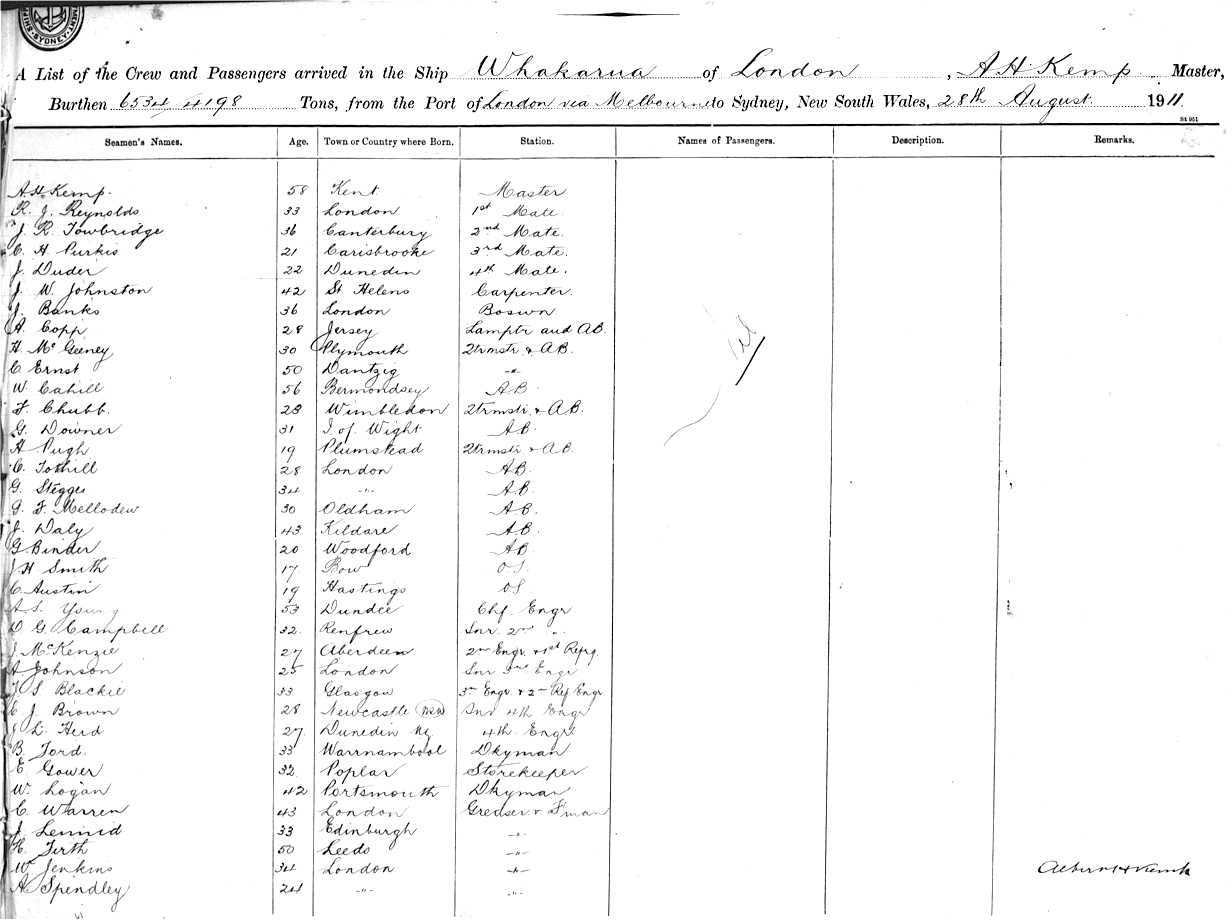 SYDNEY
A List of the Crew and Passengers arrived in the Ship Whakarua of London, A H Kemp Master,
Burthen 6534 4198 Tons, from the Port of London via Melbourne to Sydney, New South Wales, 28th August 1911.
St 951
Seamen's Names. Age. Town or Country where Born. Station. Names of Passengers. Description. Remarks.
A H Kemp. 58 Kent Master
R. J. Reynolds 33 London 1st Mate
J. R. Towbridge 36 Canterbury 2nd Mate.
C. H. Purkis 21 Carisbrooke 3rd Mate.
J. Duder 22 Dunedin 4th Mate.
J. W. Johnston 42 St Helens Carpenter.
J. Banks 36 London Boswn
A. Copp 28 Jersey Lamptr and AB.
H. McGeeney 30 Plymouth 2trmstr & AB.
C Ernst 50 Dantzig -"-
W. Cahill 56 Bermondsey AB
F. Chubb. 28 Wimbledon 2trmstr & AB.
G. Downer 31 I. of Wight AB.
H Pugh 19 Plumstead 2trmstr & AB.
C. Tothill 28 London AB.
G. Stegges 34 -"- AB.
G. F. Mellodew 30 Oldham AB.
J. Daly 43 Kildare AB.
G Binder 20 Woodford AB
J H Smith 17 Bow OS
C Austin 19 Hastings OS
A S. Young 53 Dundee Chf. Engr
D G. Campbell 32. Renfrew Snr. 2nd "
J McKenzie 27 Aberdeen 2nd Engr. & 1st Refrg.
A Johnson 25 London Snr 3rd Engr
J S Blackie 33 Glasgow 3rd Engr & 2nd Ref Engr
C J. Brown 28 Newcastle NSW Snr 4th Engr
J L. Herd 27 Dunedin NZ 4th. Engr
B. Ford. 33 Warrnambool Dkyman
E Gower 32. Poplar Storekeeper
W. Logan 42 Portsmouth Dkyman
C. Warren 43 London Greaser & Fman
J. Lennid 33 Edinburgh -"-
H. Firth 50 Leeds -"-
W Jenkins 34 London -"-
A Spendley 24 -"- -"-